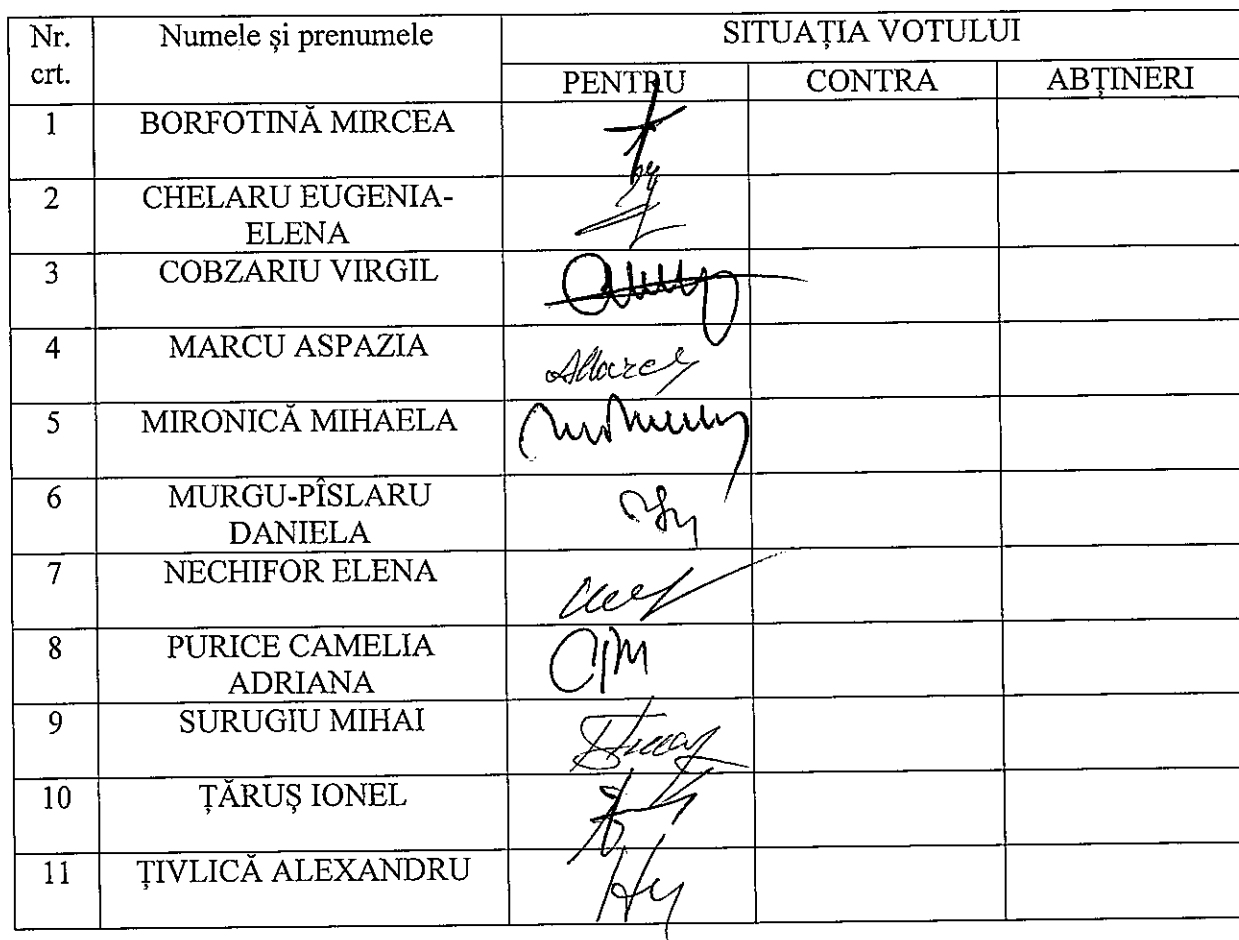 Nr. Numele și prenumele SITUAȚIA VOTULUI
crt. PENTRU CONTRA ABȚINERI
1 BORFOTINĂ MIRCEA
2 CHELARU EUGENIA-
ELENA
3 COBZARIU VIRGIL
4 MARCU ASPAZIA
5 MIRONICĂ MIHAELA
6 MURGU-PÎSLARU
DANIELA
7 NECHIFOR ELENA
8 PURICE CAMELIA
ADRIANA
9 SURUGIU MIHAI
10 ȚĂRUȘ IONEL
11 ȚIVLICĂ ALEXANDRU